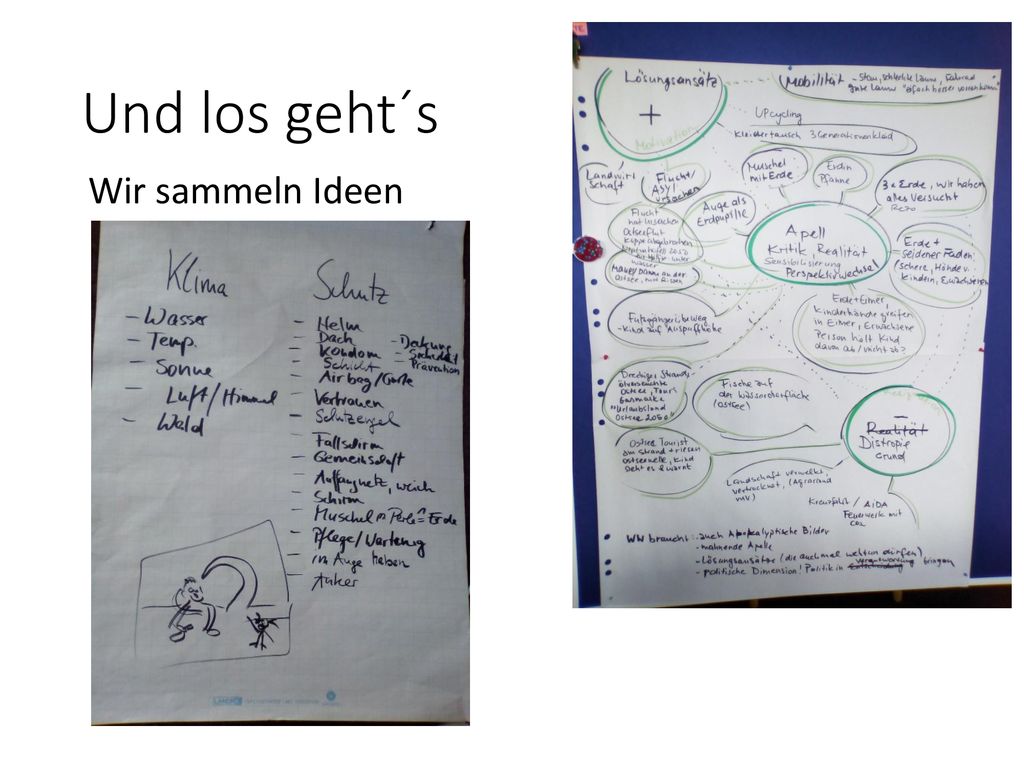 Und los geht´s
Wir sammeln Ideen
Klima
- Wasser
- Temp.
- Sonne
Luft/Himmel
- Wald
Schutz
- Helm
- Dach
- Kondom
- Schicht
- Airbag/Gurte
- Vertrauen
- Schutzengel
- Fallschirm
- Gemeinschaft
- Auffangnetz, weich
- Schirm
- Muschel m Perle = Erde
- Pflege/Wartung
- im Auge haben
- Anker
- Deckung
- Sicherheit
Prävention
Lösungsansätz
+
Motivation
Mobilität - Stau, schlechte Laune, Fahrrad
gute Laune
UPcycling
Kleidertausch 3 Generationenkleid
Landwirt
schaft
Flucht/
Asyl
ursachen
Muschel
mit Erde
Erd in
Pfanne
3 x Erde, wir haben
alles versucht
Rezo
Auge als
Erdpupille
Flucht
hat Ursachen
Ostseeflut
unter
wasser
Mauer/Damm an der
Ostsee, mit Rissen
Apell
Kritik, Realität
Sensibilisierung
Perspektivwechsel
Erde +
seidener Faden
Schere, Hände v.
Kindern, Erwachsenen
Fußgängerüberweg
- Kind auf Auspuffhöhe
Erde + Eimer,
Kinderhände greifen
in Eimer, Erwachsene
Person hält Kind
davon ab / nicht ab?
Dreckiger Strand,
ölverseuchte
Ostsee, Tour.
Gasmaske
"Urlaubsland
Ostsee 2050"
Fische auf
der Wasseroberfläche
(Ostsee)
-
Realität
Distropie
Grusel
Ostsee Tourist
am Strand + riesen
ostseewelle, Kind
sieht es & warnt
Landschaft verwelkt,
vertrocknet, (Agrarland
MV)
Kreuzfahrt / AIDA
Feuerwerk mit
CO2
WW braucht: - auch Apokalyptische Bilder
- mahnende Apelle
- Lösungsansätze (die auch mal wehtun dürfen)
- politische Dimension! Politik in Verantwortung bringen